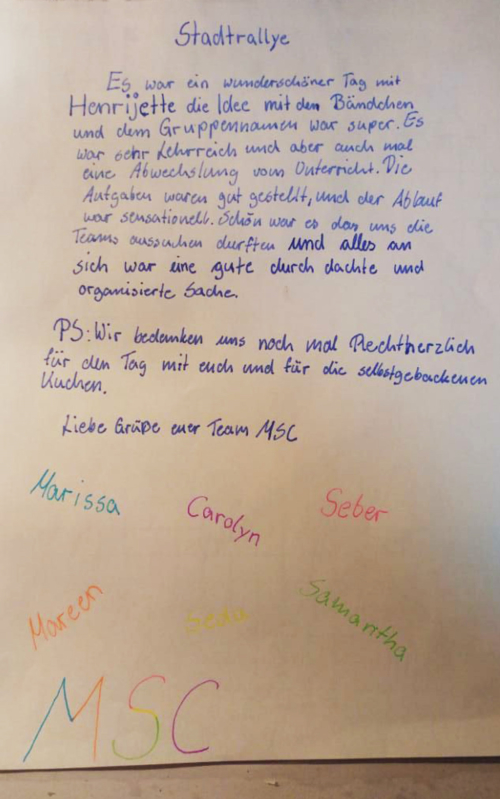 Stadtrallye
Es war ein wunderschöner Tag mit
Henrijette die Idee mit den Bändchen
und dem Gruppennamen war super. Es
war sehr Lehrreich und aber auch mal
eine Abwechslung vom Unterricht. Die
Aufgaben waren gut gestellt, und der Ablauf
war sensationell. Schön war es das uns die
Teams aussuchen durften und alles an
sich war eine gute durch dachte und
organisierte Sache.
PS: Wir bedanken uns noch mal Rechtherzlich
für den Tag mit euch und für die selbstgebackenen
Kuchen.
Liebe Grüße euer Team MSC
Marissa
Carolyn
Seber
Mareen
Seda
Samantha
MSC